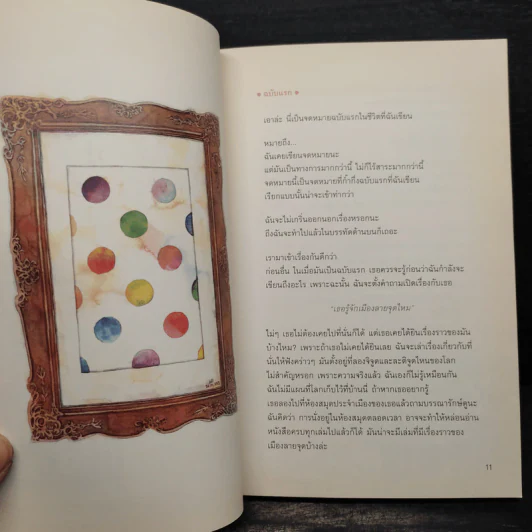 ฉบับแรก
เอาล่ะ นี่เป็นจดหมายฉบับแรกในชีวิตที่ฉันเขียน
หมายถึง...
ฉันเคยเขียนจดหมายนะ
แต่มันเป็นทางการมากกว่านี้ ไม่ก็ไร้สาระมากกว่านี้
จดหมายนี้เป็นจดหมายที่ก้ำกึ่งฉบับแรกที่ฉันเขียน
เรียกแบบนั้นน่าจะเข้าท่ากว่า
ฉันจะไม่เกริ่นออกนอกเรื่องหรอกนะ
ถึงฉันจะทำไปแล้วในบรรทัดด้านบนก็เถอะ
เรามาเข้าเรื่องกันดีกว่า
ก่อนอื่น ในเมื่อมันเป็นฉบับแรก เธอควรจะรู้ก่อนว่าฉันกำลังจะ
เขียนถึงอะไร เพราะฉะนั้น ฉันจะตั้งคำถามเปิดเรื่องกับเธอ
"เธอรู้จักเมืองลายจุดไหม"
ไม่ๆ เธอไม่ต้องเคยไปที่นั่นก็ได้ แต่เธอเคยได้ยินเรื่องราวของมัน
บ้างไหม? เพราะถ้าเธอไม่เคยได้ยินเลย ฉันจะเล่าเรื่องเกี่ยวกับที่
นั่นให้ฟังคร่าวๆ มันตั้งอยู่ที่ลองจิจูดและละติจูดไหนของโลก
ไม่สำคัญหรอก เพราะความจริงแล้ว ฉันเองก็ไม่รู้เหมือนกัน
ฉันไม่มีแผนที่โลกเก็บไว้ที่บ้านนี่ ถ้าหากเธออยากรู้
เธอลองไปที่ห้องสมุดประจำเมืองของเธอแล้วถามบรรณารักษ์ดูนะ
ฉันคิดว่า การนั่งอยู่ในห้องสมุดตลอดเวลา อาจจะทำให้หล่อนอ่าน
หนังสือครบทุกเล่มไปแล้วก็ได้ มันน่าจะมีเล่มที่มีเรื่องราวของ
เมืองลายจุดบ้างล่ะ
11